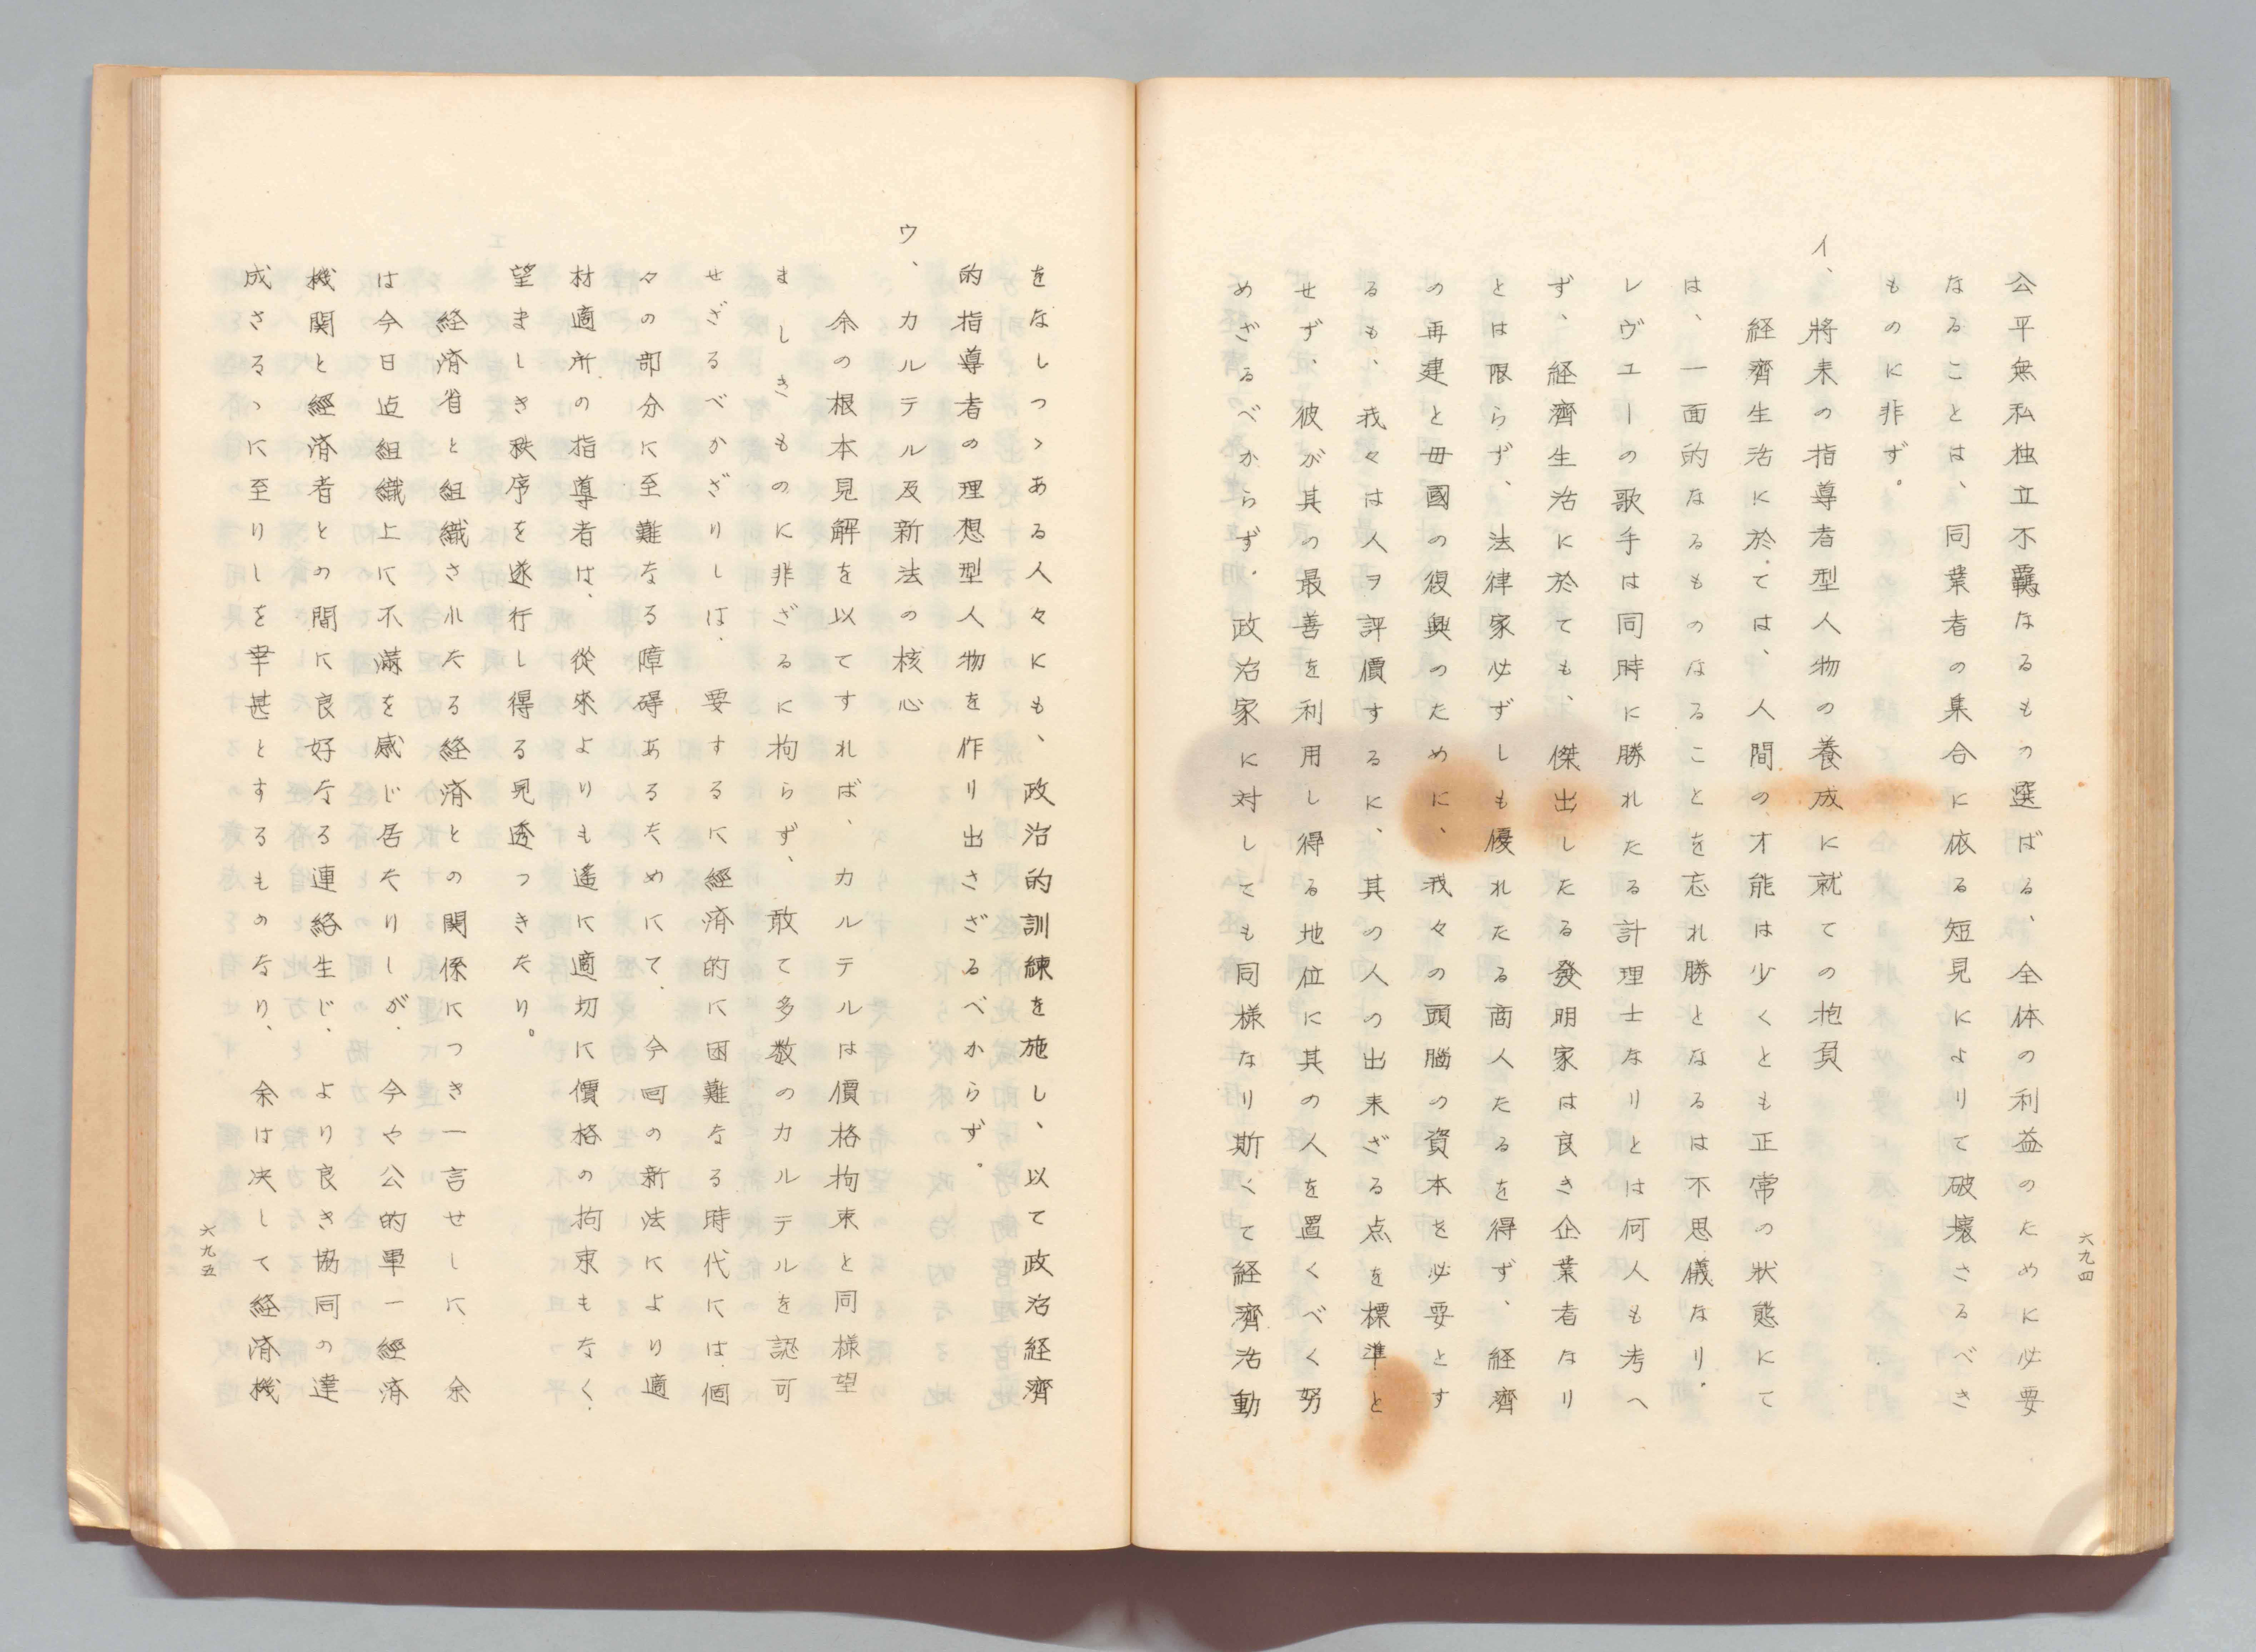 公平無私独立不羈なるもの選ばる、全体の利益のために必要
なることは、同業者の集合に依る短見によりて破壊さるべき
ものに非ず。
イ、將来の指導者型人物の養成に就ての抱負
経濟生活に於ては、人間の才能は少くとも正常の状態にて
は、一面的なるものなることを忘れ勝となるは不思儀なり。
レヴユーの歌手は同時に勝れたる計理士なりとは何人も考へ
ず、経濟生活に於ても、傑出したる發明家は良き企業者なり
とは限らず、法律家必ずしも優れたる商人たるを得ず、経濟
の再建と毋國の復興のために、我々の頭腦の資本を必要とす
るも、我々は人ヲ評價するに、其の人の出来ざる点を標準と
せず、彼が其の最善を利用し得る地位に其の人を置くべく努
めざるべからず。政治家に対しても同様なり斯くて経濟活動
六九四
をなしつゝある人々にも、政治的訓練を施し、以て政治経濟
的指導者の理想型人物を作り出さざるべからず。
ウ、カルテル及新法の核心
余の根本見解を以てすれば、カルテルは價格拘束と同様望
ましきものに非ざるに拘らず、敢て多数のカルテルを認可
せざるべかざりしは、要するに經済的に困難なる時代には個
々の部分に至難なる障碍あるためにて、今回の新法により適
材適所の指導者は、從來よりも遙に適切に價格の拘束もなく、
望ましき秩序を遂行し得る見透つきたり。
経済省と組織されたる経済との関係につき一言せしに 余
は今日迄組織上に不滿を感じ居たりしが、今や公的單一經済
機関と經済者との間に良好なる連絡生じ、より良き協同の達
成さるゝに至りしを幸甚とするものなり、余は决して経済機
六九五